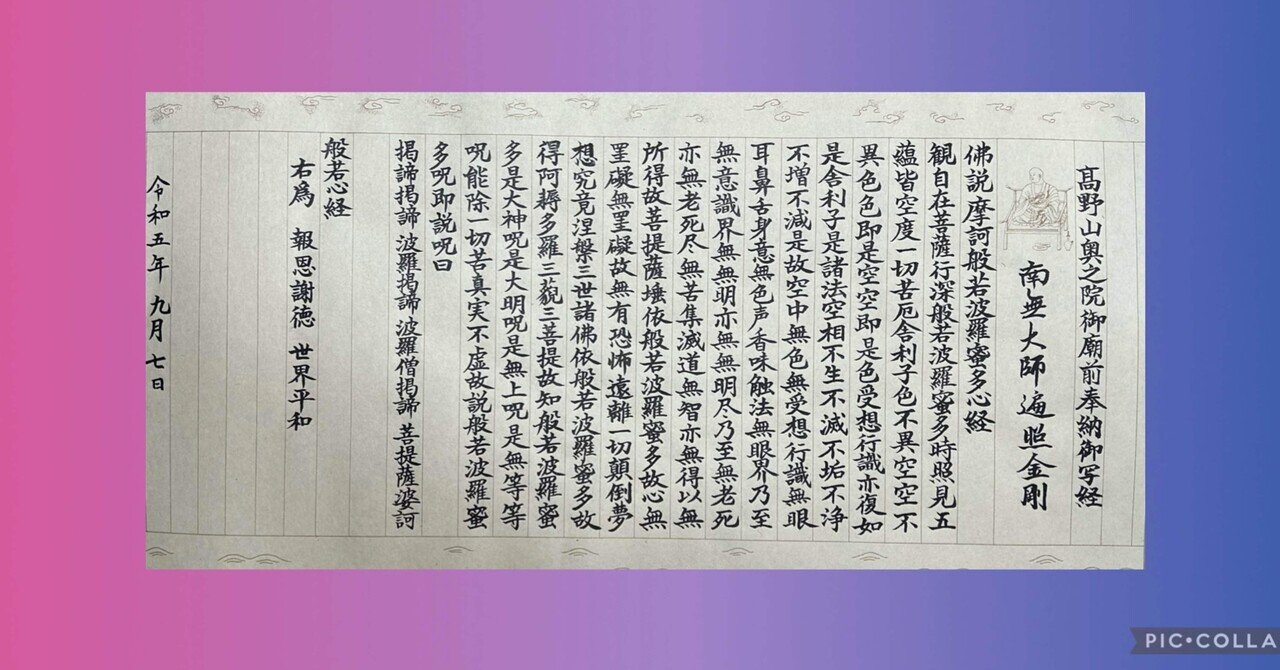 髙野山奥之院御廟前奉納御写経
南無大師遍照金剛
佛説摩訶般若波羅蜜多心経
観自在菩薩行深般若波羅蜜多時照見五
蘊皆空度一切苦厄舎利子色不異空空不
異色色即是空空即是色受想行識亦復如
是舎利子是諸法空相不生不滅不垢不浄
不増不減是故空中無色無受想行識無眼
耳鼻舌身意無色声香味触法無眼界乃至
無意識界無無明亦無無明尽乃至無老死
亦無老死尽無苦集滅道無智亦無得以無
所得故菩提薩埵依般若波羅蜜多故心無
罣礙無罣礙故無有恐怖遠離一切顛倒夢
想究竟涅槃三世諸佛依般若波羅蜜多故
得阿耨多羅三藐三菩提故知般若波羅蜜
多是大神呪是大明呪是無上呪是無等等
呪能除一切苦真実不虚故説般若波羅蜜
多呪即説呪曰
掲諦掲諦 波羅掲諦 波羅僧掲諦 菩提薩婆訶
般若心経
右爲 報恩謝徳 世界平和
令和五年 九月 七日
PIC•COLLA